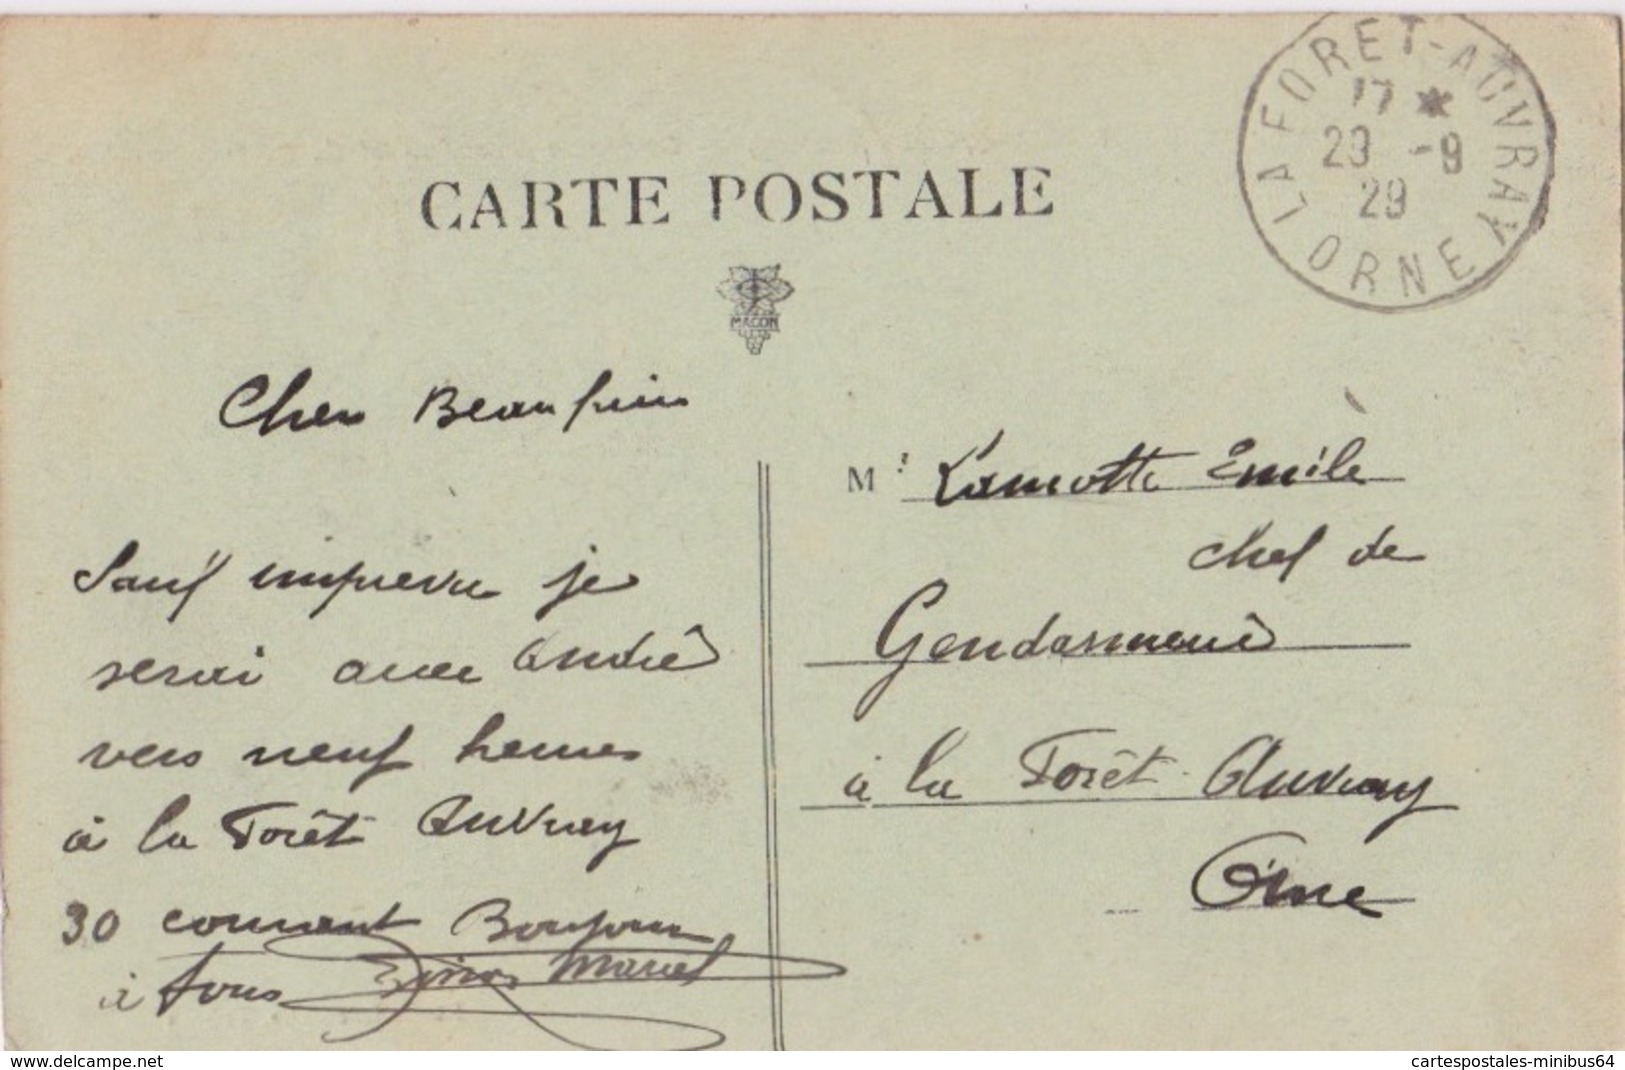 LA FORET-AUVRAY
17 *
29 -9
29
ORNE
CARTE POSTALE
MACON
Cher Beaufrère
Sauf imprevu je
serai avec André
vers neuf heures
à la Forêt Auvray
30 courant Bonjour
à tous Simon Marcel
M. Lamotte Emile
chef de
Gendarmerie
à la Forêt-Auvray
Orne
www.delcampe.net
cartespostales-minibus64